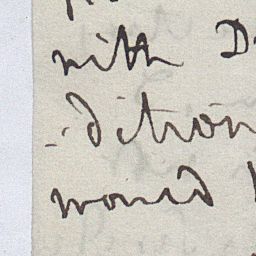 with D
dition
would